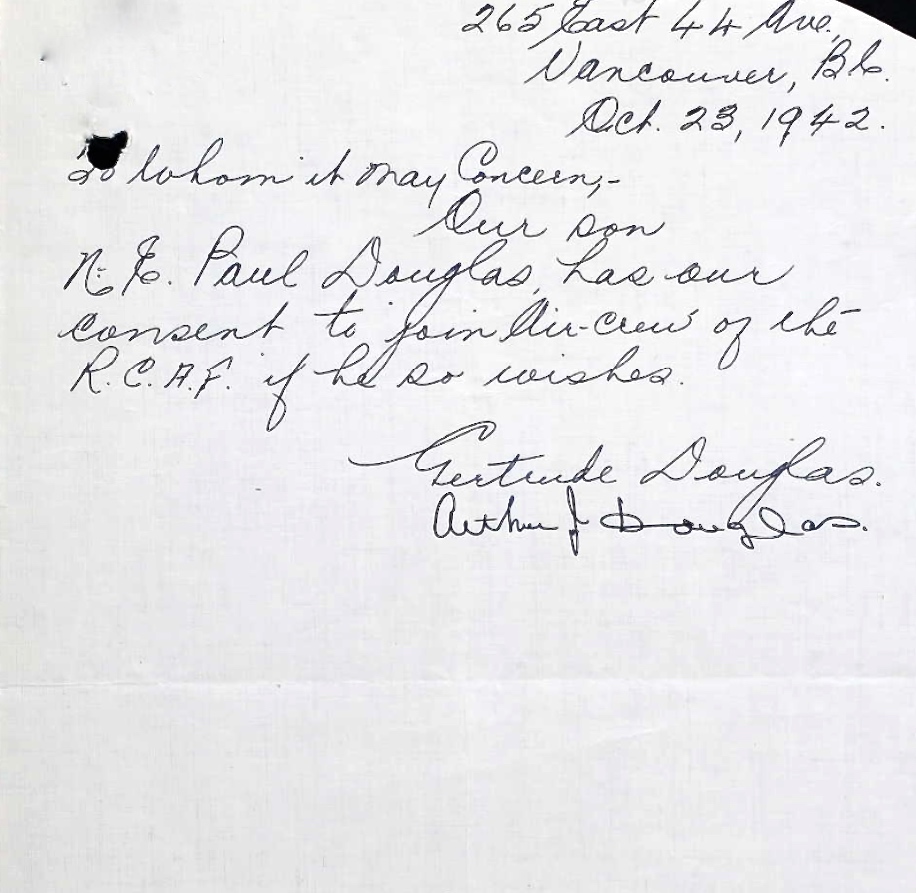 265 East 44 Ave.,
Vancouver, B.C.
Oct. 23, 1942.
To Whom it May Concern,-
Our son
N. E. Paul Douglas, has our
consent to join Air-Crew of the
R.C.A.F. if he so wishes.
Gertrude Douglas.
Arthur J Douglas.